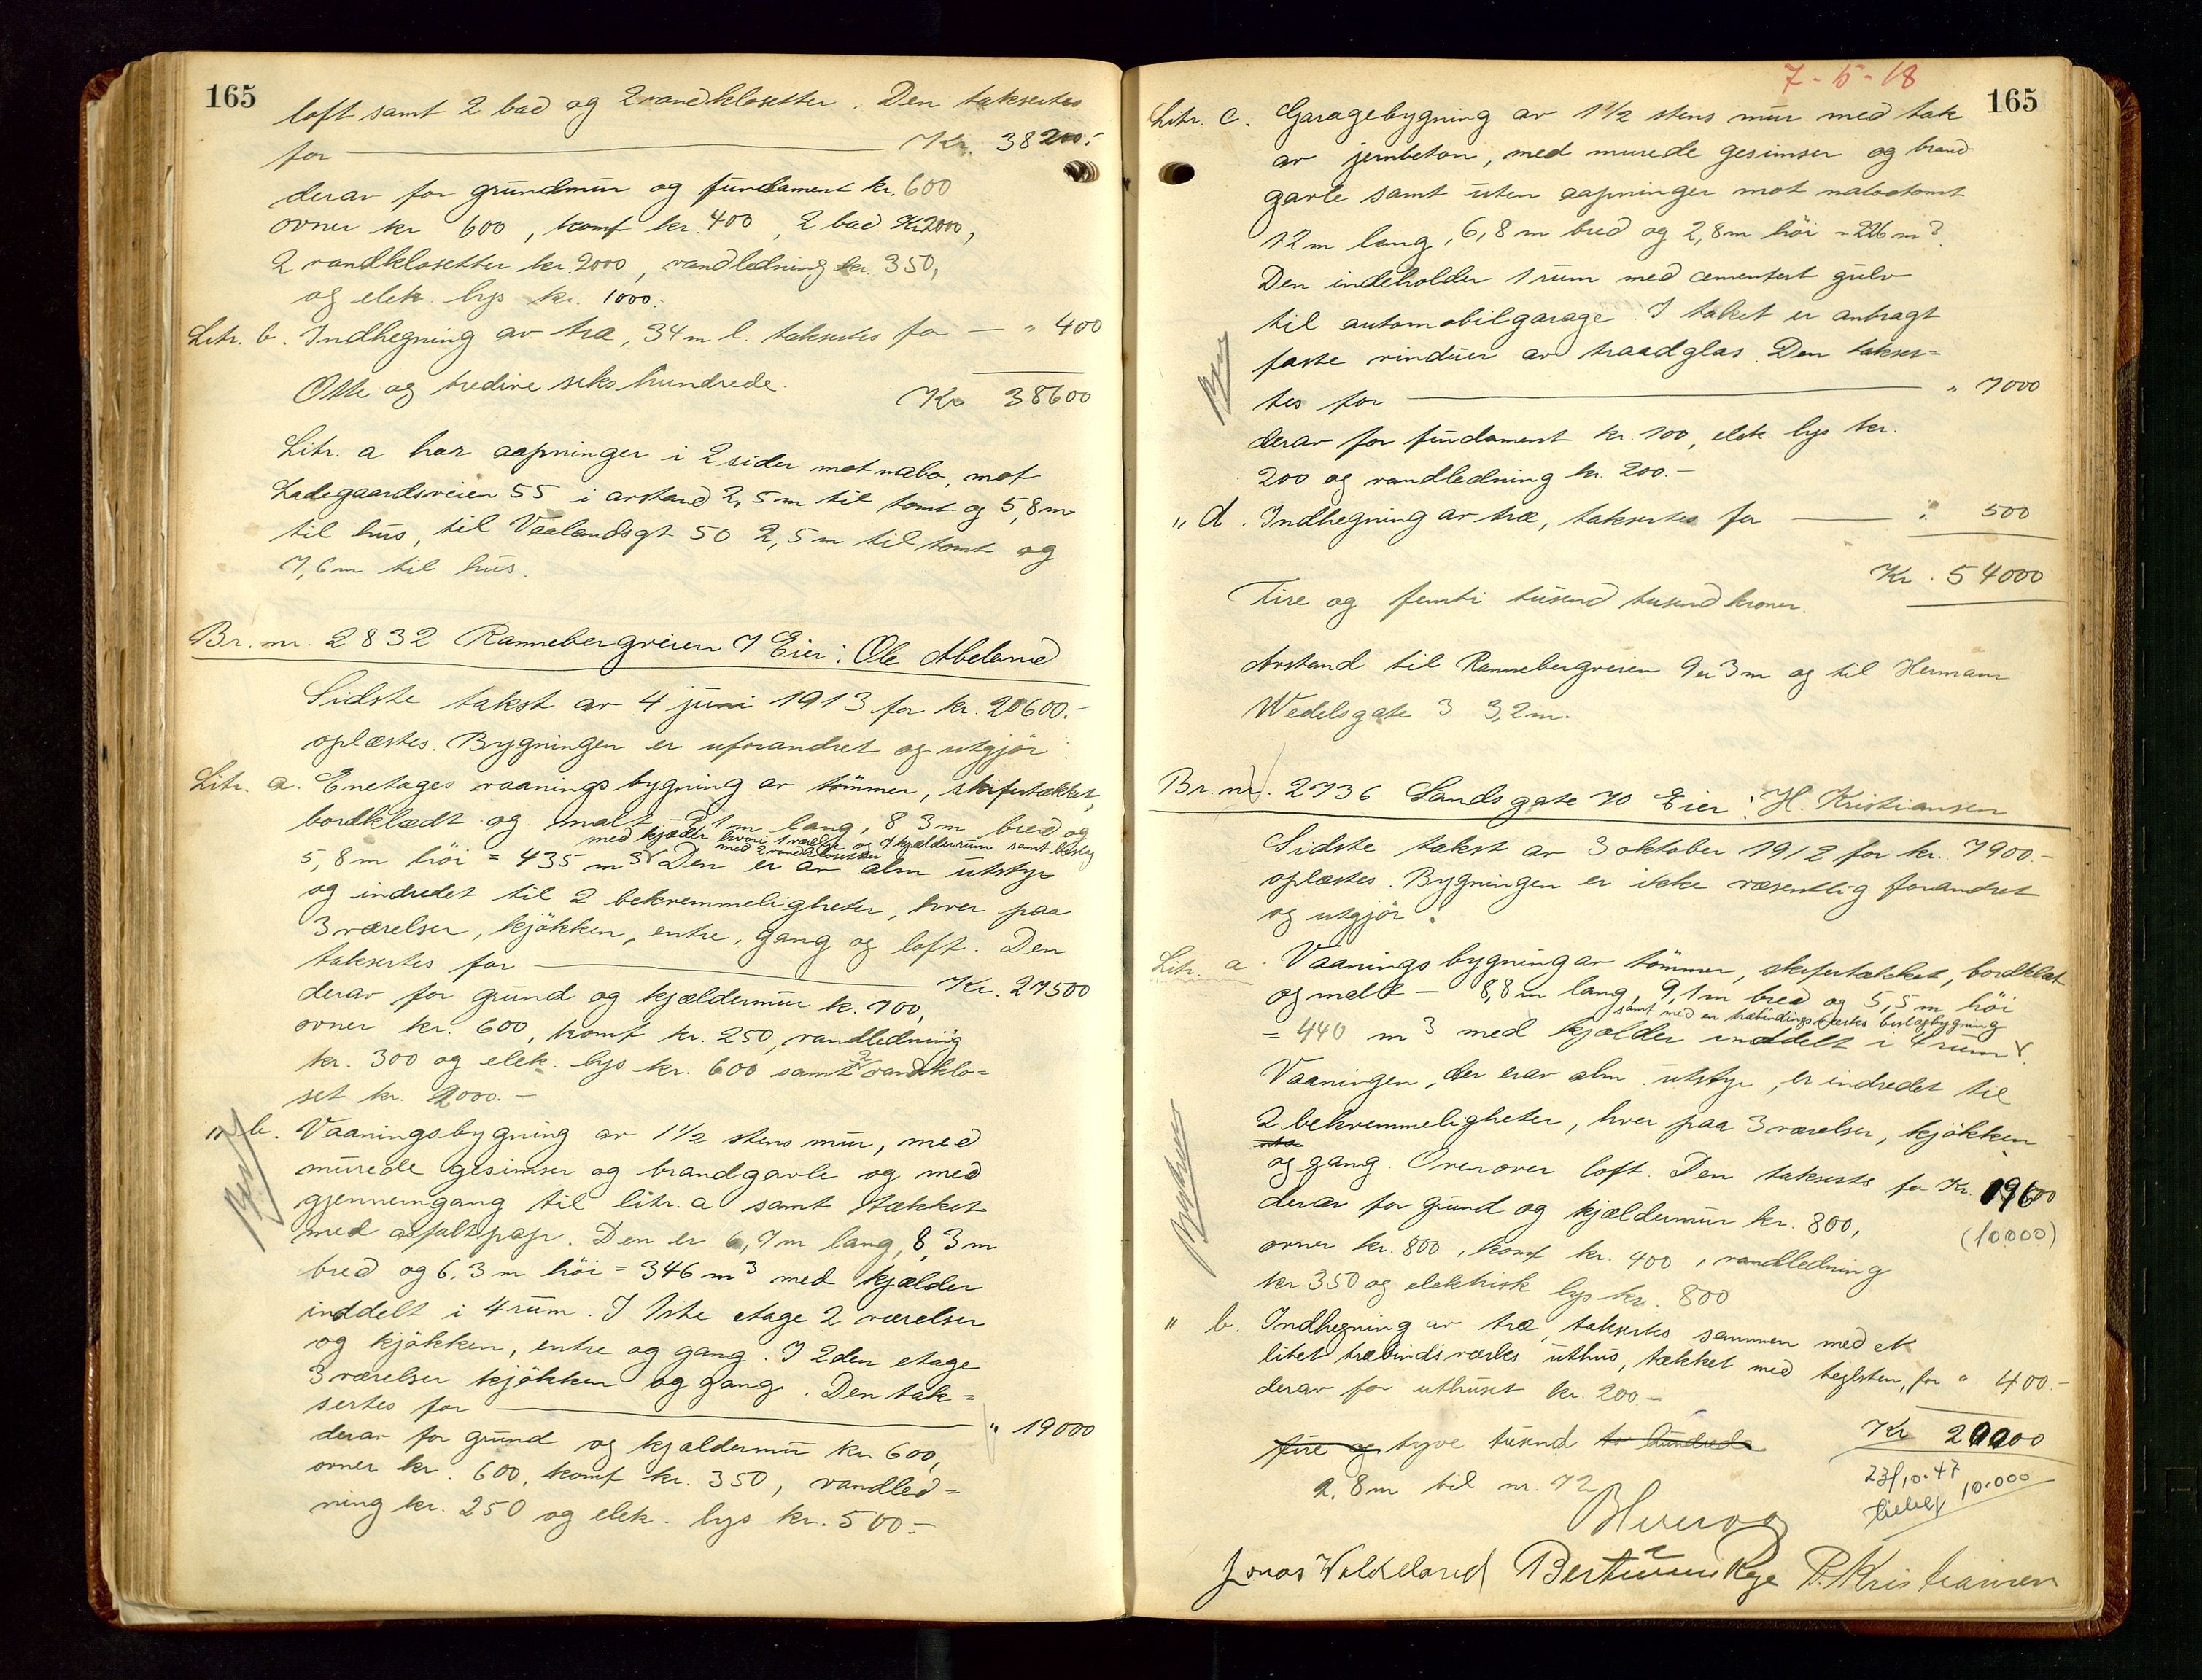 165
loft samt 2 bad og 2 vandklosetter. Den taksertes
for Kr. 38200.-
derav for grundmur og fundament kr. 600
ovner kr 600, komf kr. 400, 2 bad Kr 2000,
2 vandklosetter kr. 2000, vandledning kr. 350,
og elek. lys kr. 1000.-
Litr. b. Indhegning av træ, 34 m l. taksertes for — " 400
Otte og tredive seks hundrede. Kr 38600
Litr. a har aapninger i 2 sider mot nabo, mot
Ladegaardsveien 55 i avstand 2,5 m til tomt og 5,8 m
til hus, til Vaalandsgt 50 2,5 m til tomt og
7,6 m til hus.
Br. nr. 2832 Rannebergveien 7 Eier: Ole Abeland
Sidste takst av 4 juni 1913 for kr. 20600.-
oplæstes. Bygningen er uforandret og utgjør
Litr. a. Enetages vaaningsbygning av tømmer, skifertækket,
bordklædt og malt — 9,1 m lang, 8,3 m bred og
med kjælder hvori 1 værelse og 7 kjælderrum samt bislag
med 2 vandklosetter
5,8 m høi = 435 m3 Den er av alm utstyr
og indredet til 2 bekvemmeligheter, hver paa
3 værelser, kjøkken, entre, gang og loft. Den
taksertes for Kr. 27500
derav for grund og kjældermur k. 700,
ovner kr. 600, komf kr. 250, vandledning
kr. 300 og elek. lys kr. 600 samt 2 vandklo=
set kr. 2000.-
" b. Vaaningsbygning av 1½ stens mur, med
murede gesimser og brandgavle og med
gjennemgang til litr. a samt tækket
med asfaltpap. Den er 6,7 m lang, 8,3 m
bred og 6,3 m høi = 346 m3 med kjælder
inddelt i 4 rum. I 1ste etage 2 værelser
og kjøkken, entre og gang. I 2den etage
3 værelser kjøkken og gang. Den tak=
sertes for " 19000
derav for grund og kjældermur kr 600,
ovner kr. 600, komf kr. 350, vandled=
ning kr. 250 og elek. lys kr. 500.-
7-5-18
165
Litr. c. Garagebygning av 1½ stens mur med tak
av jernbeton, med murede gesimser og brand
gavle samt uten aapninger mot nabotomt
12 m lang, 6,8 m bred og 2,8 m høi = 226 m3.
Den indeholder 1 rum med cementert gulv
til automobilgarage. I taket er anbragt
faste vinduer av traadglas. Den takser=
tes for " 7000
derav for fundament kr. 100, elek. lys kr.
200 og vandledning kr. 200.-
" d. Indhegning av træ, taksertes for " 500
Kr. 54000
Fire og femti tusend tusend kroner.
Avstand til Rannebergveien 9 er 3 m og til Hermann
Wedelsgate 3 3,2 m.
Br. nr. 2736 Sandsgate 70 Eier: H. Kristiansen
Sidste takst av 3 oktober 1912 for kr. 7900.-
oplæstes. Bygningen er ikke væsentlig forandret
og utgjør:
Litr. a. Vaaningsbygning av tømmer, skifertækket, bordklæt
og malt — 8,8 m lang, 9,1 m bred og 5,5 m høi
samt med en træbindingsverks bislagbygning
= 440 m3 med kjælder inddelt i 4 rum
Vaaningen, der er av alm. utstyr, er indredet til
2 bekvemmeligheter, hver paa 3 værelser, kjøkken
og gang. Ovenover loft. Den taksertes for Kr. 19600
derav for grund og kjældermur kr. 800, (10000)
ovner kr. 800, komf kr. 400, vandledning
kr 350 og elektrisk lys kr. 800
" b. Indhegning av træ, taksertes sammen med et
litet træbindsværks uthus, tækket med teglsten, for " 400.-
derav for uthuset kr. 200.-
fire og tyve tusend to hundrede Kr 20000
2,8 m til nr. 72
23/10.47
10.000
Jonas Welheland P. Kristiansen